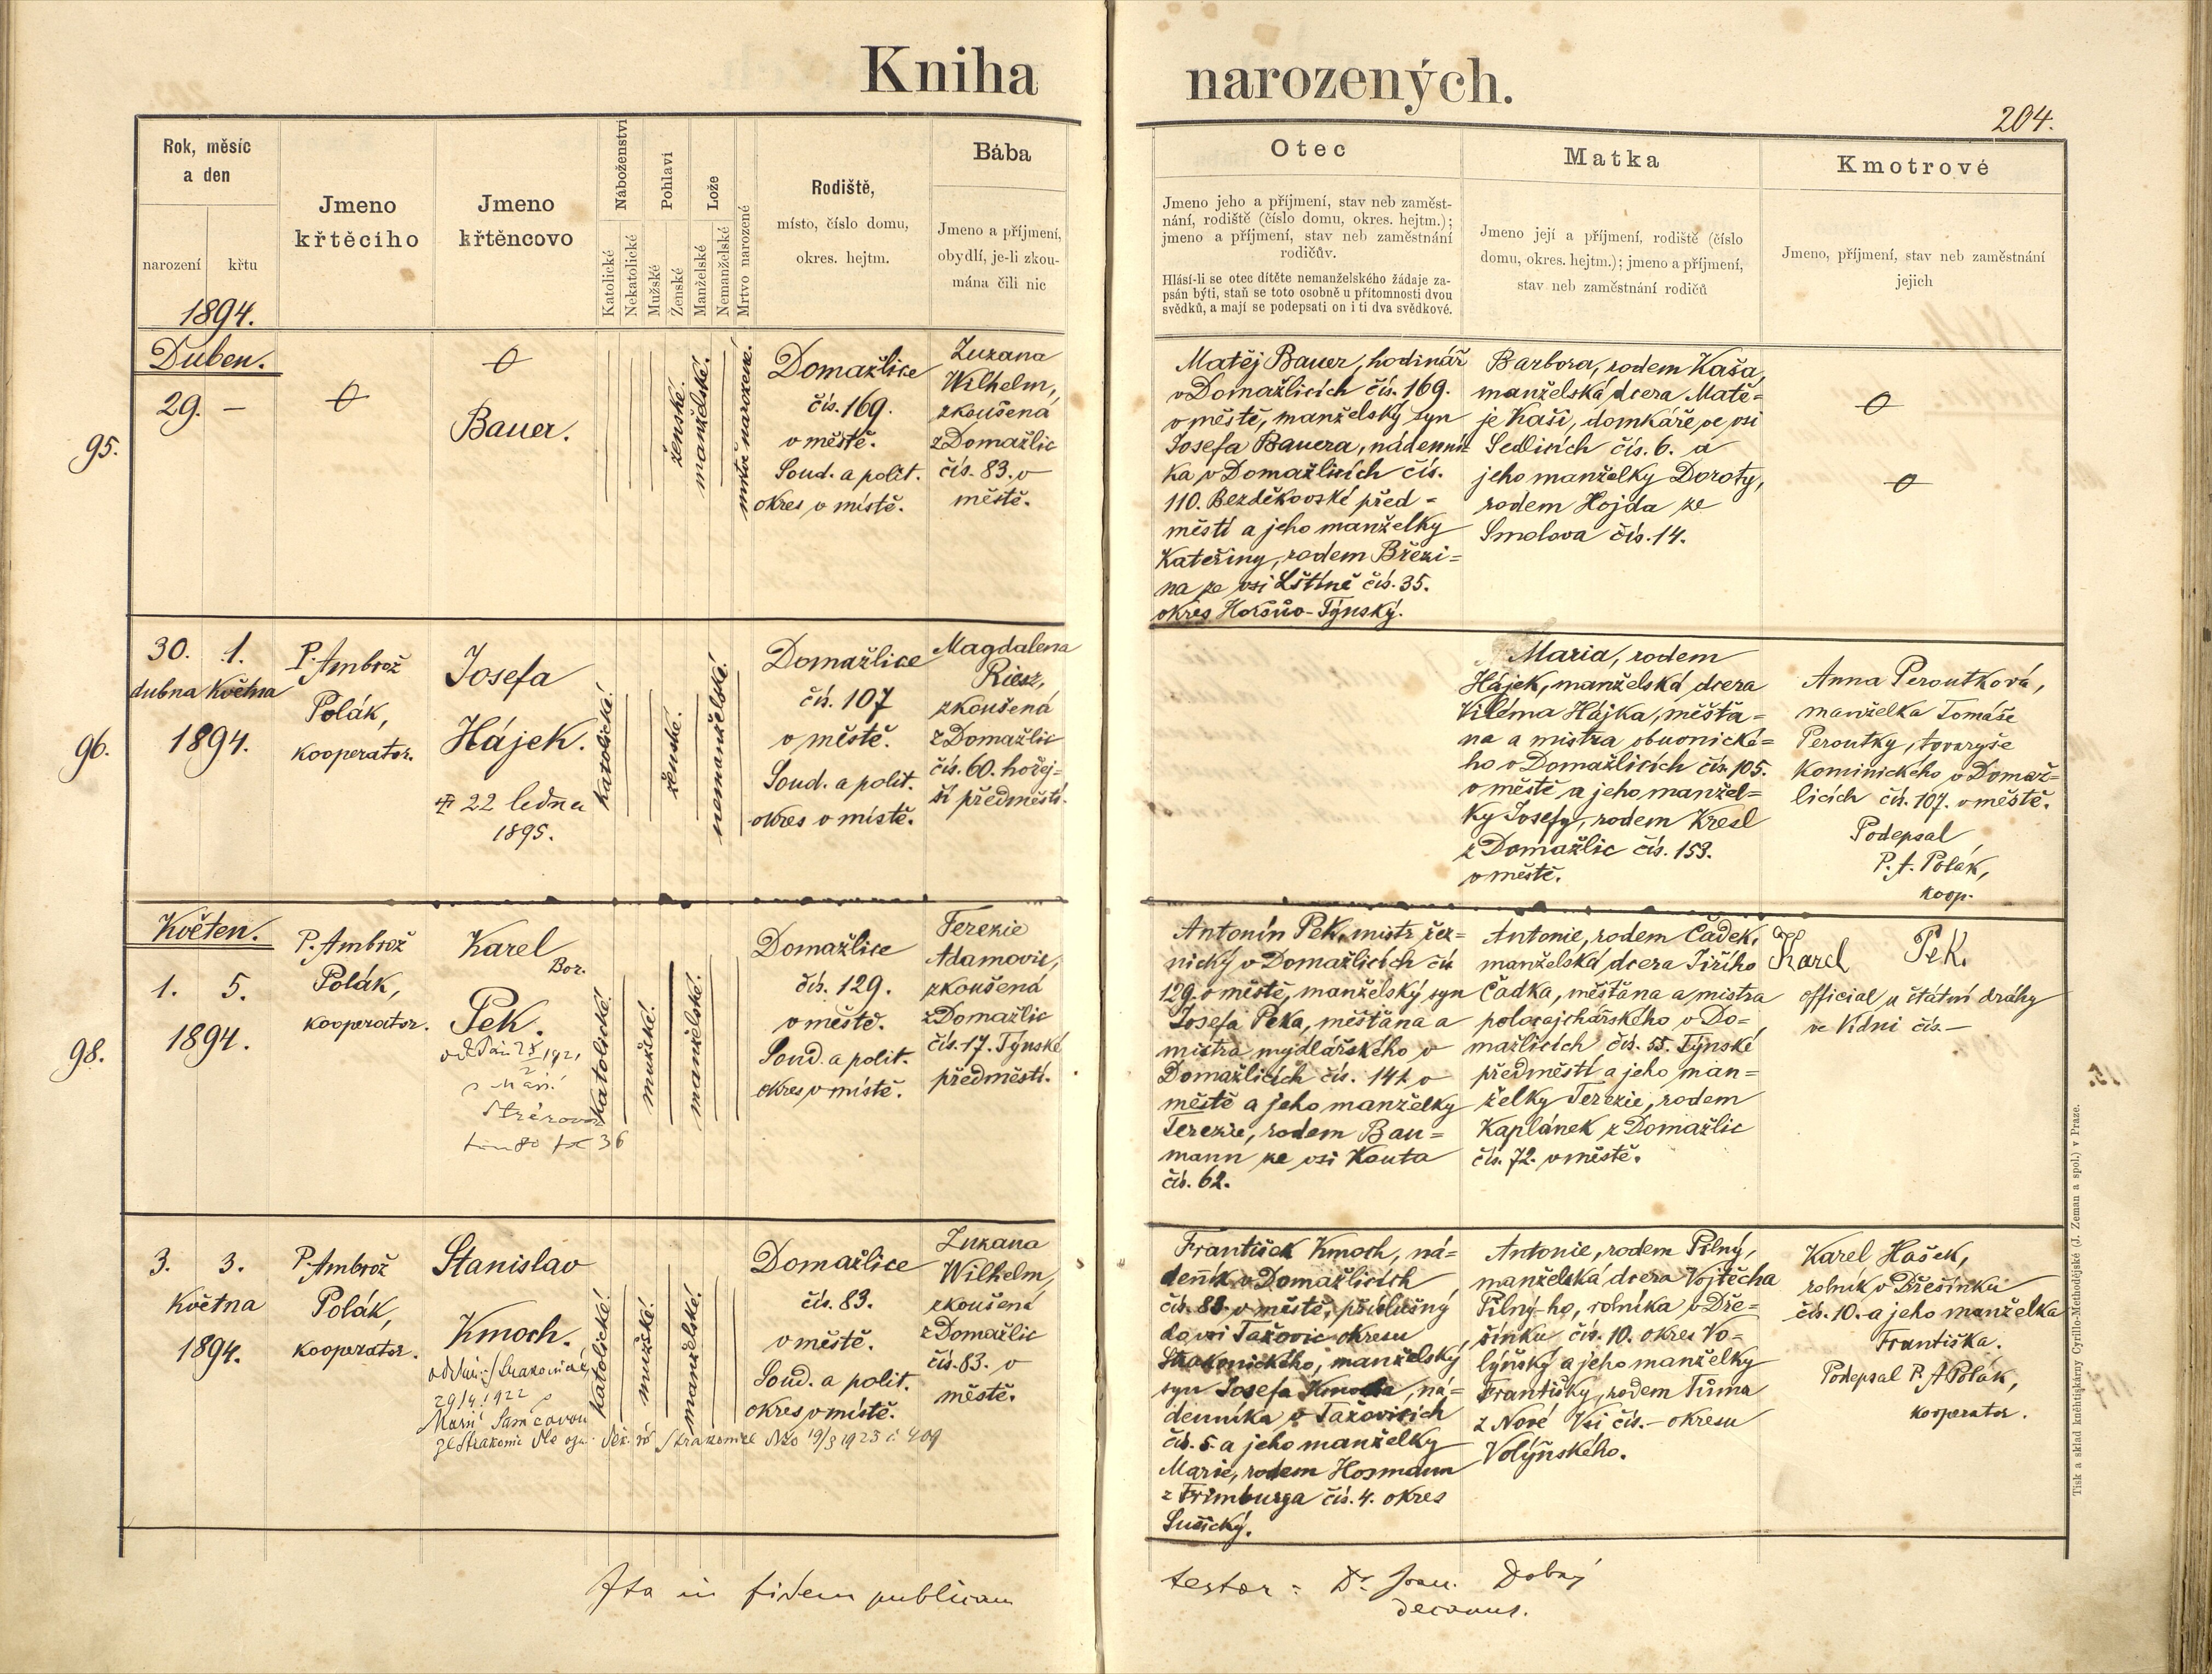 Kniha narozených.
204.
Rok, měsíc
a den
narození
křtu
1894.
Jmeno
křtěcího
Jmeno
křtěncovo
Náboženství
Katolické
Nekatolické
Pohlaví
Mužské
Ženské
Lože
Manželské
Nemanželské
Mrtvo narozené
Rodiště,
místo, číslo domu,
okres. hejtm.
Bába
Jmeno a příjmení,
obydlí, je-li zkou-
mána čili nic
Otec
Jmeno jeho a příjmení, stav neb zaměst-
nání, rodiště (číslo domu, okres. hejtm.);
jmeno a příjmení, stav neb zaměstnání
rodičův.
Hlásí-li se otec dítěte nemanželského žádaje za-
psán býti, staň se toto osobně u přítomnosti dvou
svědků, a mají se podepsati on i ti dva svědkové.
Matka
Jmeno její a příjmení, rodiště (číslo
domu, okres. hejtm.); jmeno a příjmení,
stav neb zaměstnání rodičů
Kmotrové
Jmeno, příjmení, stav neb zaměstnání
jejich
95.
Duben.
29. –
Bauer.
ženské.
manželské.
mrtvě narozené.
Domažlice
čís. 169.
v městě.
Soud. a polit.
okres v místě.
Zuzana
Wilhelm,
zkoušená
z Domažlic
čís. 83. v
městě.
Matěj Bauer, hodinář
v Domažlicích čís. 169.
v městě, manželský syn
Josefa Bauera, nádenní-
ka v Domažlicích čís.
110. Bezděkovské před=
městí a jeho manželky
Kateřiny, rodem Březi=
na ze vsi Lštině čís. 35.
okres Horšův-Týnský.
Barbora, rodem Kaša,
manželská dcera Matě=
je Kaši, domkáře ve vsi
Sedlicích čís. 6. a
jeho manželky Doroty,
rodem Hojda ze
Smolova čís. 14.
96.
30. 1.
dubna Května
1894.
P. Ambrož
Polák,
kooperator.
Josefa
Hájek.
22 ledna
1895.
katolické.
ženské.
nemanželské.
Domažlice
čís. 107
v městě.
Soud. a polit.
okres v místě.
Magdalena
Riesz,
zkoušená
z Domažlic
čís. 60. hořej=
ší předměstí.
Maria, rodem
Hájek, manželská dcera
Viléma Hájka, měšťa=
na a mistra obuvnické=
ho v Domažlicích čís. 105.
v městě a jeho manžel=
ky Josefy, rodem Kresl
z Domažlic čís. 153.
v městě.
Anna Peroutková,
manželka Tomáše
Peroutky, tovaryše
kominického v Domaž=
licích čís. 107. v městě.
Podepsal
P. A. Polák,
koop.
98.
Květen.
1. 5.
1894.
P. Ambrož
Polák,
kooperator.
Karel
Bor.
Pek.
katolické.
mužské.
manželské.
Domažlice
čís. 129.
v městě.
Soud. a polit.
okres v místě.
Terezie
Adamovic,
zkoušená
z Domažlic
čís. 17. Týnské
předměstí.
Antonín Pek, mistr řez=
nický v Domažlicích čís
129. v městě, manželský syn
Josefa Peka, měšťana a
mistra mydlářského v
Domažlicích čís. 141. v
městě a jeho manželky
Terezie, rodem Bau=
mann ze vsi Kouta
čís. 62.
Antonie, rodem Čadek,
manželská dcera Jiřího
Čadka, měšťana a mistra
v Do=
mažlicích čís. 55. Týnské
předměstí a jeho man=
želky Terezie, rodem
Kaplánek z Domažlic
čís. 72. v městě.
Karel Pek.
official u státní dráhy
ve Vídni čís. –
3. 3.
Května
1894.
P. Ambrož
Polák,
kooperator.
Stanislav
Kmoch.
29/4 1922
katolické.
mužské.
manželské.
Domažlice
čís. 83.
v městě.
Soud. a polit.
okres v místě.
Zuzana
Wilhelm,
zkoušená
z Domažlic
čís. 83. v
městě.
František Kmoch, ná=
denník v Domažlicích
čís. 83. v městě, příslušný
do vsi Tažovic okresu
Strakonického, manželský
syn Josefa Kmocha, ná=
denníka v Tažovicích
čís. 5. a jeho manželky
Marie, rodem Hosmann
z Frimburga čís. 4. okres
Sušický.
Antonie, rodem Pilný,
manželská dcera Vojtěcha
Pilný-ho, rolníka v Dře=
šínku čís. 10. okres Vo=
lýňský a jeho manželky
Františky, rodem Tůma
z Nové Vsi čís. – okresu
Volýňského.
Karel Hašek,
rolník v Dřešínku
čís. 10. a jeho manželka
Františka.
Podepsal P. A. Polák,
kooperator.
Ita in fidem publicam
testor: Dr. Dobrý
decanus.
Tisk a sklad knihtiskárny Cyrillo-Methodějské (J. Zeman a spol.) v Praze.